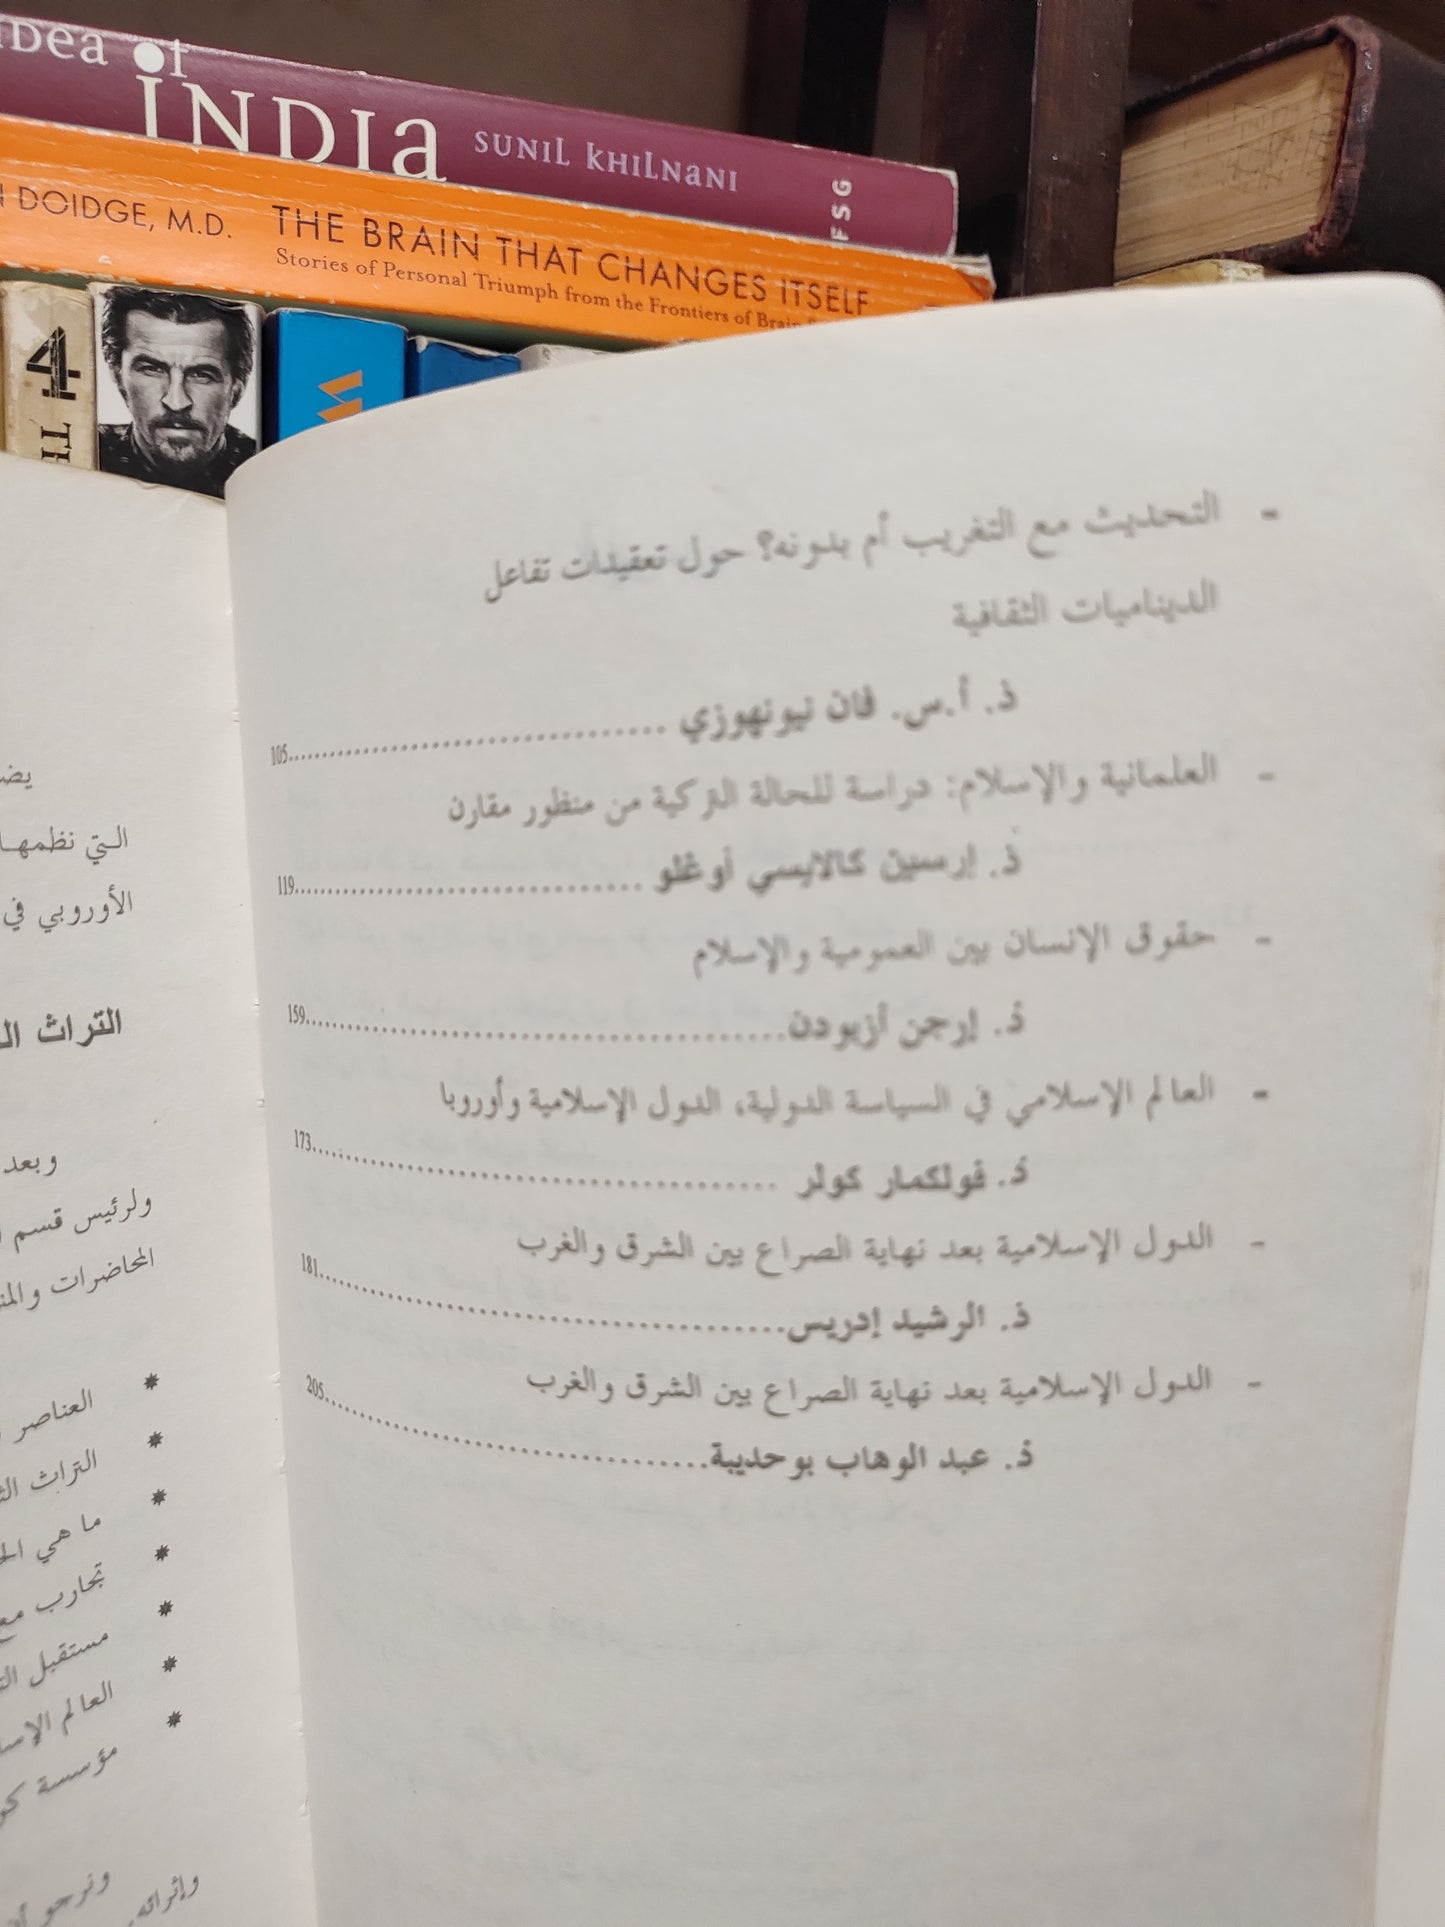 IDea of
INDIa SUNIL KHILNANI FSG
DOIDGE, M.D. THE BRAIN THAT CHANGES ITSELF
Stories of Personal Triumph from the Frontiers of Brain
4
- التحديث مع التغريب أم بدونه؟ حول تعقيدات تفاعل
الديناميات الثقافية
ذ. أ.س. فان نيونهوزي ......................................105
- العلمانية والإسلام: دراسة للحالة التركية من منظور مقارن
ذ. إرسين كالايسي أوغلو ......................................119
- حقوق الإنسان بين العمومية والإسلام
ذ. إرجن أزبودن......................................159
- العالم الإسلامي في السياسة الدولية، الدول الإسلامية وأوروبا
ذ. فولكمار كولر ......................................173
- الدول الإسلامية بعد نهاية الصراع بين الشرق والغرب
ذ. الرشيد إدريس......................................181
- الدول الإسلامية بعد نهاية الصراع بين الشرق والغرب
ذ. عبد الوهاب بوحديبة......................................205
التي نظمها
الأوروبي في
التراث
وبعد
ولرئيس قسم
المحاضرات
* العناصر
* التراث
* ما هي
* تجارب مع
* مستقبل
* العالم
* مؤسسة
ونرجو
وإثرائه